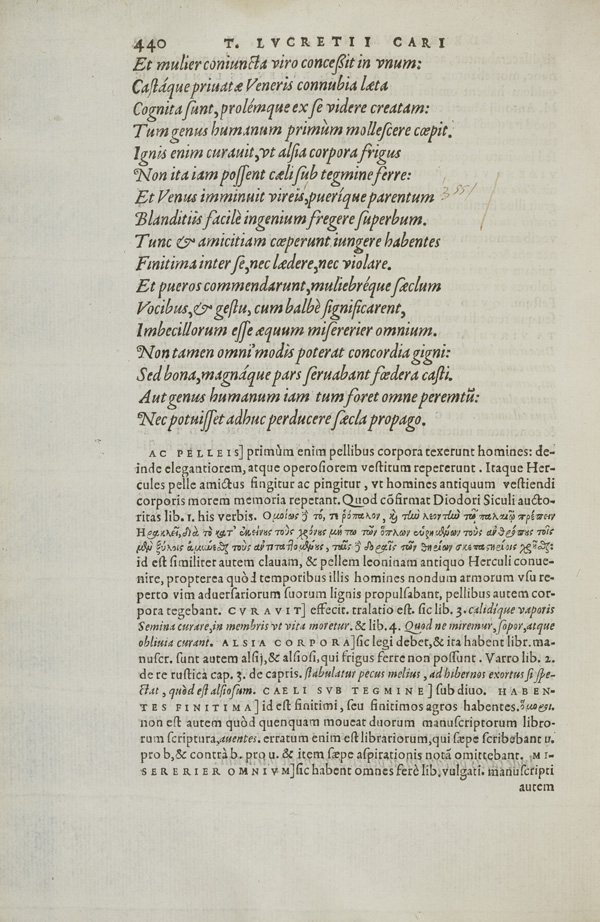 440 T. LVCRETII CARI
Et mulier coniuncta viro conceßit in vnum:
Castáque priuatæ Veneris connubia læta
Cognita sunt, prolémque ex se videre creatam:
Tum genus humanum primùm mollescere cœpit.
Ignis enim curauit, vt alsia corpora frigus
Non ita iam possent cæli sub tegmine ferre:
Et Venus imminuit vireis, pueríque parentum 355/
Blanditiis facilè ingenium fregere superbum.
Tunc & amicitiam cœperunt iungere habentes
Finitima inter se, nec lædere, nec violare.
Et pueros commendarunt, muliebréque sæclum
Vocibus, & gestu, cum balbè significarent,
Imbecillorum esse æquum misererier omnium.
Non tamen omni' modis poterat concordia gigni:
Sed bona, magnáque pars seruabant fœdera casti.
Aut genus humanum iam tum foret omne peremtũ:
Nec potuisset adhuc perducere sæcla propago.
AC PELLEIS] primùm enim pellibus corpora texerunt homines: de-
inde elegantiorem, atque operosiorem vestitum repererunt. Itaque Her-
cules pelle amictus fingitur ac pingitur, vt homines antiquum vestiendi
corporis morem memoria repetant. Quod cõfirmat Diodori Siculi aucto-
ritas lib. 1. his verbis. Ομοίως ἢ τό, τε ῥόπαλον, κὴ τὼ λεοντὼ τῷ παλαιῷ πρέπειν
Ηρακλεῖ, διὰ τὸ κατ' ἐκείνους τοὺς χρόνους μήπω τῶν ὅπλων εὑρημένων τοὺς ἀνθρώπους τοῖς
μὲν ξύλοις ἀμύνεσθαι τοὺς ἀντιταττομένους, ταῖς ἢ δοραῖς τῶν θηρίων σκεπαστηρίοις χρῆσθαι
id est similiter autem clauam, & pellem leoninam antiquo Herculi conue-
nire, propterea quòd temporibus illis homines nondum armorum vsu re-
perto vim aduersariorum suorum lignis propulsabant, pellibus autem cor-
pora tegebant. CVRAVIT] effecit. tralatio est. sic lib. 3. calidique vaporis
Semina curare, in membris vt vita moretur. & lib. 4. Quod ne miremur, sopor, atque
obliuia curant. ALSIA CORPORA] sic legi debet, & ita habent libr. ma-
nuscr. sunt autem alsij, & alsiosi, qui frigus ferre non possunt. Varro lib. 2.
de re rustica cap. 3. de capris. stabulatur pecus melius, ad hibernos exortus si spe-
ctat, quòd est alsiosum. CAELI SVB TEGMINE] sub diuo. HABEN-
TES FINITIMA] id est finitimi, seu finitimos agros habentes. ὅμοροι.
non est autem quòd quenquam moueat duorum manuscriptorum libro-
rum scriptura, auentes. erratum enim est librariorum, qui sæpe scribebant u.
pro b, & contrà b. pro u. & item sæpe aspirationis notã omittebant. MI-
SERERIER OMNIVM] sic habent omnes ferè lib. vulgati. manuscripti
autem